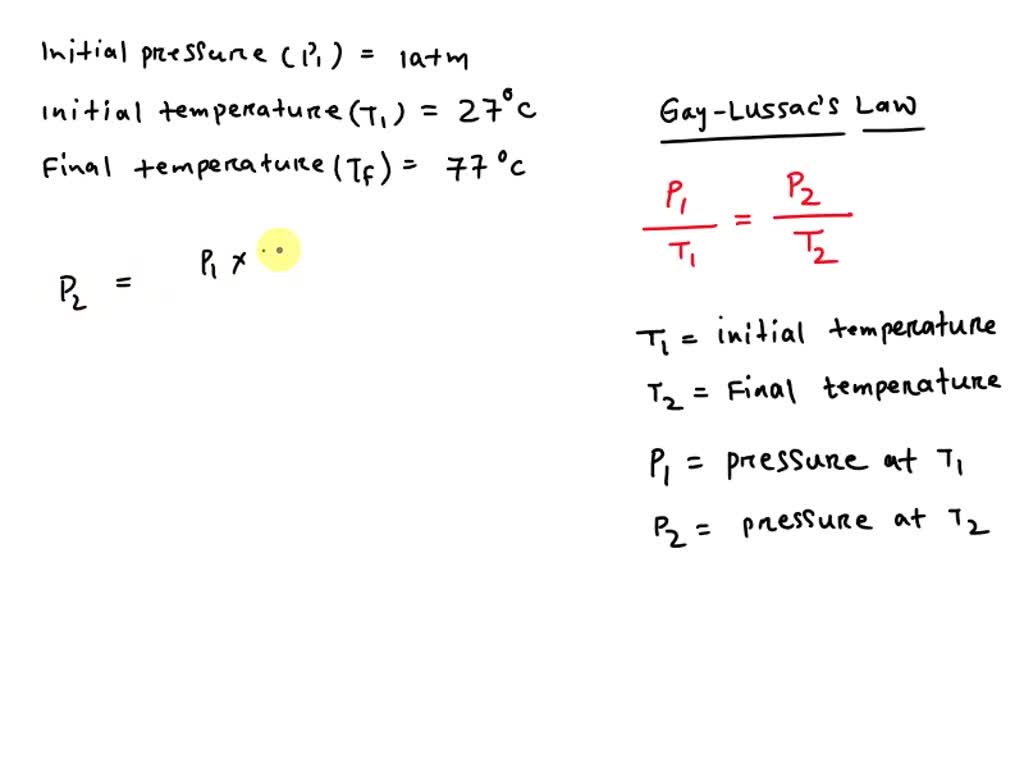 Initial pressure (P₁) = 1atm
Initial temperature (T₁) = 27°C
Final temperature (Tf) = 77°C
P₂ = P₁ ×
Gay-Lussac's Law
P₁/T₁ = P₂/T₂
T₁ = initial temperature
T₂ = Final temperature
P₁ = pressure at T₁
P₂ = pressure at T₂